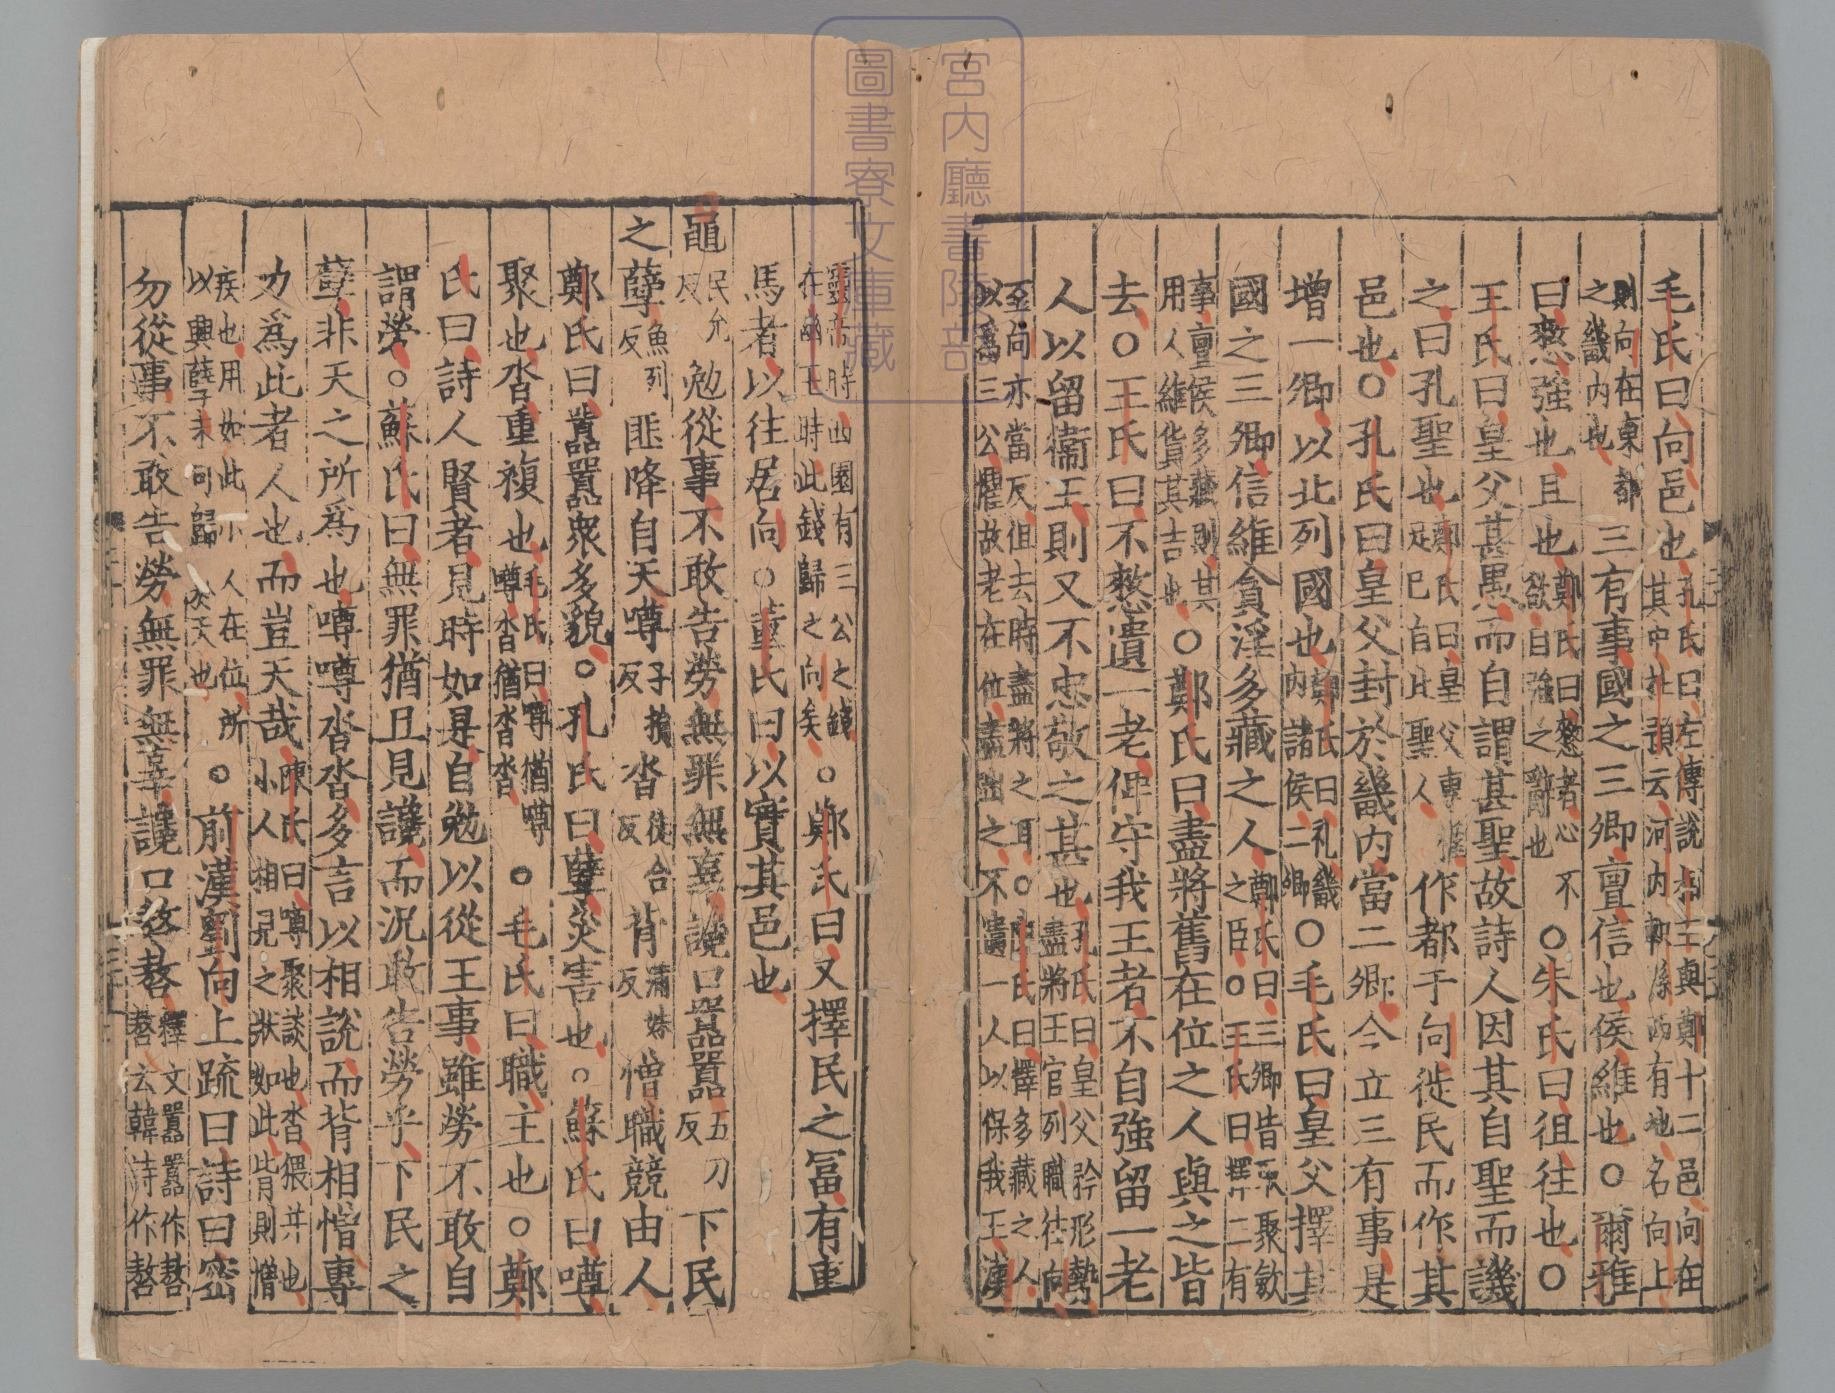 毛氏曰向邑也孔氏曰左傳說桓王與鄭十二邑向在其中杜預云河内軹縣西有地名向上
則向在東都之畿内也三有事國之三卿亶信也侯維也○爾雅
曰憖強也且也鄭氏曰憖者心不欲自強之辭也○朱氏曰徂往也○
王氏曰皇父甚愚而自謂甚聖故詩人因其自聖而譏
之曰孔聖也鄭氏曰皇父專權足已自比聖人作都于向徙民而作其
邑也○孔氏曰皇父封於畿内當二卿今立三有事是
增一卿以比列國也鄭氏曰礼畿内諸侯二卿○毛氏曰皇父擇其
國之三卿信維貪淫多藏之人鄭氏曰三卿皆取聚斂之臣○王氏曰擇二有
事亶侯多藏則其用人維貨其吉也○鄭氏曰盡將舊在位之人與之皆
去○王氏曰不憖遺一老俾守我王者不自強留一老
人以留衞王則又不忠敬之甚也孔氏曰皇父矜形勢盡將王官列職往向
至尚亦當反但去時盡將之耳○陳氏曰擇多藏之人以爲三公懼故老在位盡出之不遺一人以保我王漢
靈帝時西園有三公之錢在幽王時此錢歸之向矣○鄭氏曰又擇民之冨有車
馬者以往居向○董氏曰以實其邑也
黽民允反勉從事不敢告勞無罪無辜讒口囂囂五刀反下民
之孽魚列反匪降自天噂子損反沓徒合反背蒲妹反憎職競由人
鄭氏曰囂囂衆多貌○孔氏曰孽災害也○蘇氏曰噂
聚也沓重複也毛氏曰噂猶噂噂沓猶沓沓○毛氏曰職主也○鄭
氏曰詩人賢者見時如是自勉以從王事雖勞不敢自
謂勞○蘇氏曰無罪猶且見讒而況敢告勞乎下民之
孽非天之所爲也噂噂沓沓多言以相說而背相憎專
力爲此者人也而豈天哉陳氏曰噂聚談也沓猥并也小人相見之狀如此背則憎
疾也用如此小人在位所以興孽未可歸於天也○前漢劉向上疏曰詩曰密
勿從事不敢告勞無罪無辜讒口嗸嗸釋文囂囂作嗸嗸云韓詩作嗸
宮内廳書陵部
圖書寮文庫藏